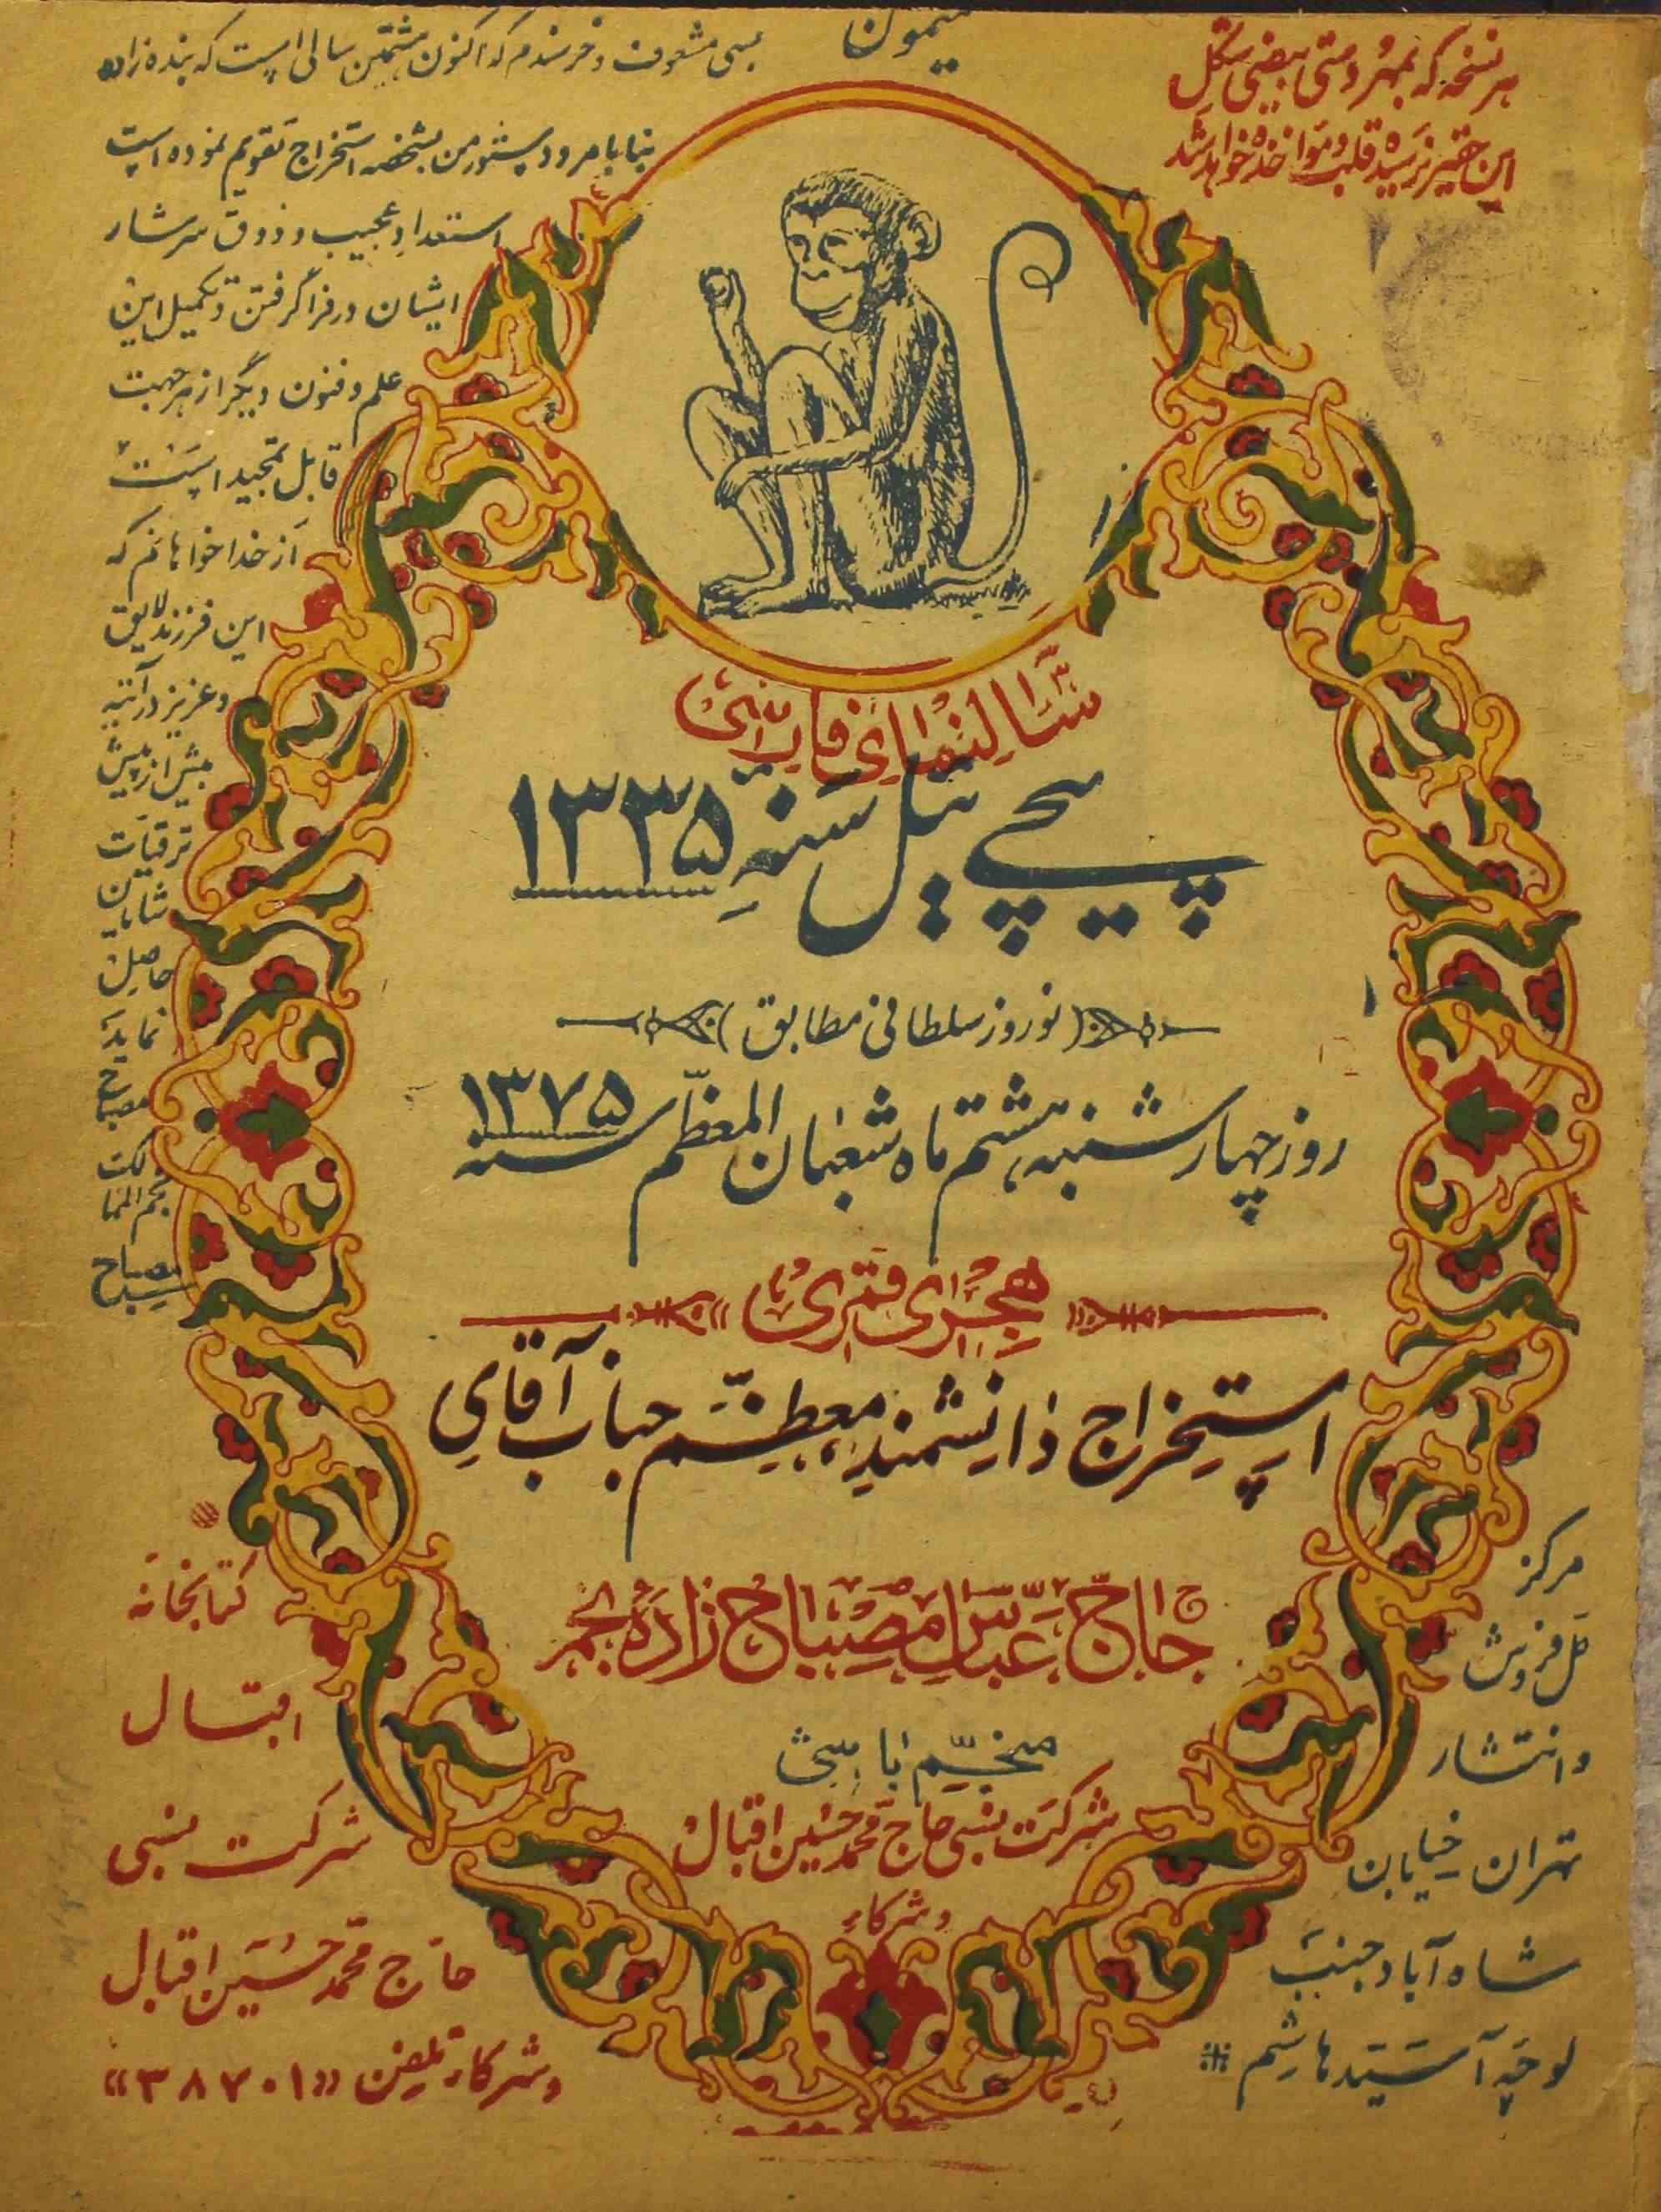 میمون
هر نسخه که بمهر و دستی بیضی شکل
این حقیر نرسیده قلب و مؤاخذه خواهد شد
بسی مشعوف و خرسندم که اکنون هشتمین سالی است که بنده زاده
بنا بامر و دستور من بشخصه استخراج تقویم نموده است
استعداد عجیب و ذوق سرشار
ایشان در فرا گرفتن و تکمیل این
علم و فنون دیگر از هر جهت
قابل تمجید است
از خدا خواهانم که
این فرزند لایق
و عزیز در آتیه
بیش از پیش
ترقیات
شایان
حاصل
نماید
مصباح
نجم الممالک
سید مصباح
سالنمای فارسی
پیچی ئیل سنه ۱۳۳۵
(نوروز سلطانی مطابق)
روز چهار شنبه هشتم ماه شعبان المعظّم سنه ۱۳۷۵
هجری قمری
استخراج دانشمند معظّم جناب آقای
حاجّ عبّاس مصباح زاده
منجّم باشی
شرکت نسبی حاج محمّد حسین اقبال
و شرکاء
مرکز
کل فروش
و انتشار
تهران خیابان
شاه آباد جنب
کوچه آسیّد هاشم
کتابخانه
اقبال
شرکت نسبی
حاج محمّد حسین اقبال
و شرکاء تلفن «۳۸۷۰۱»